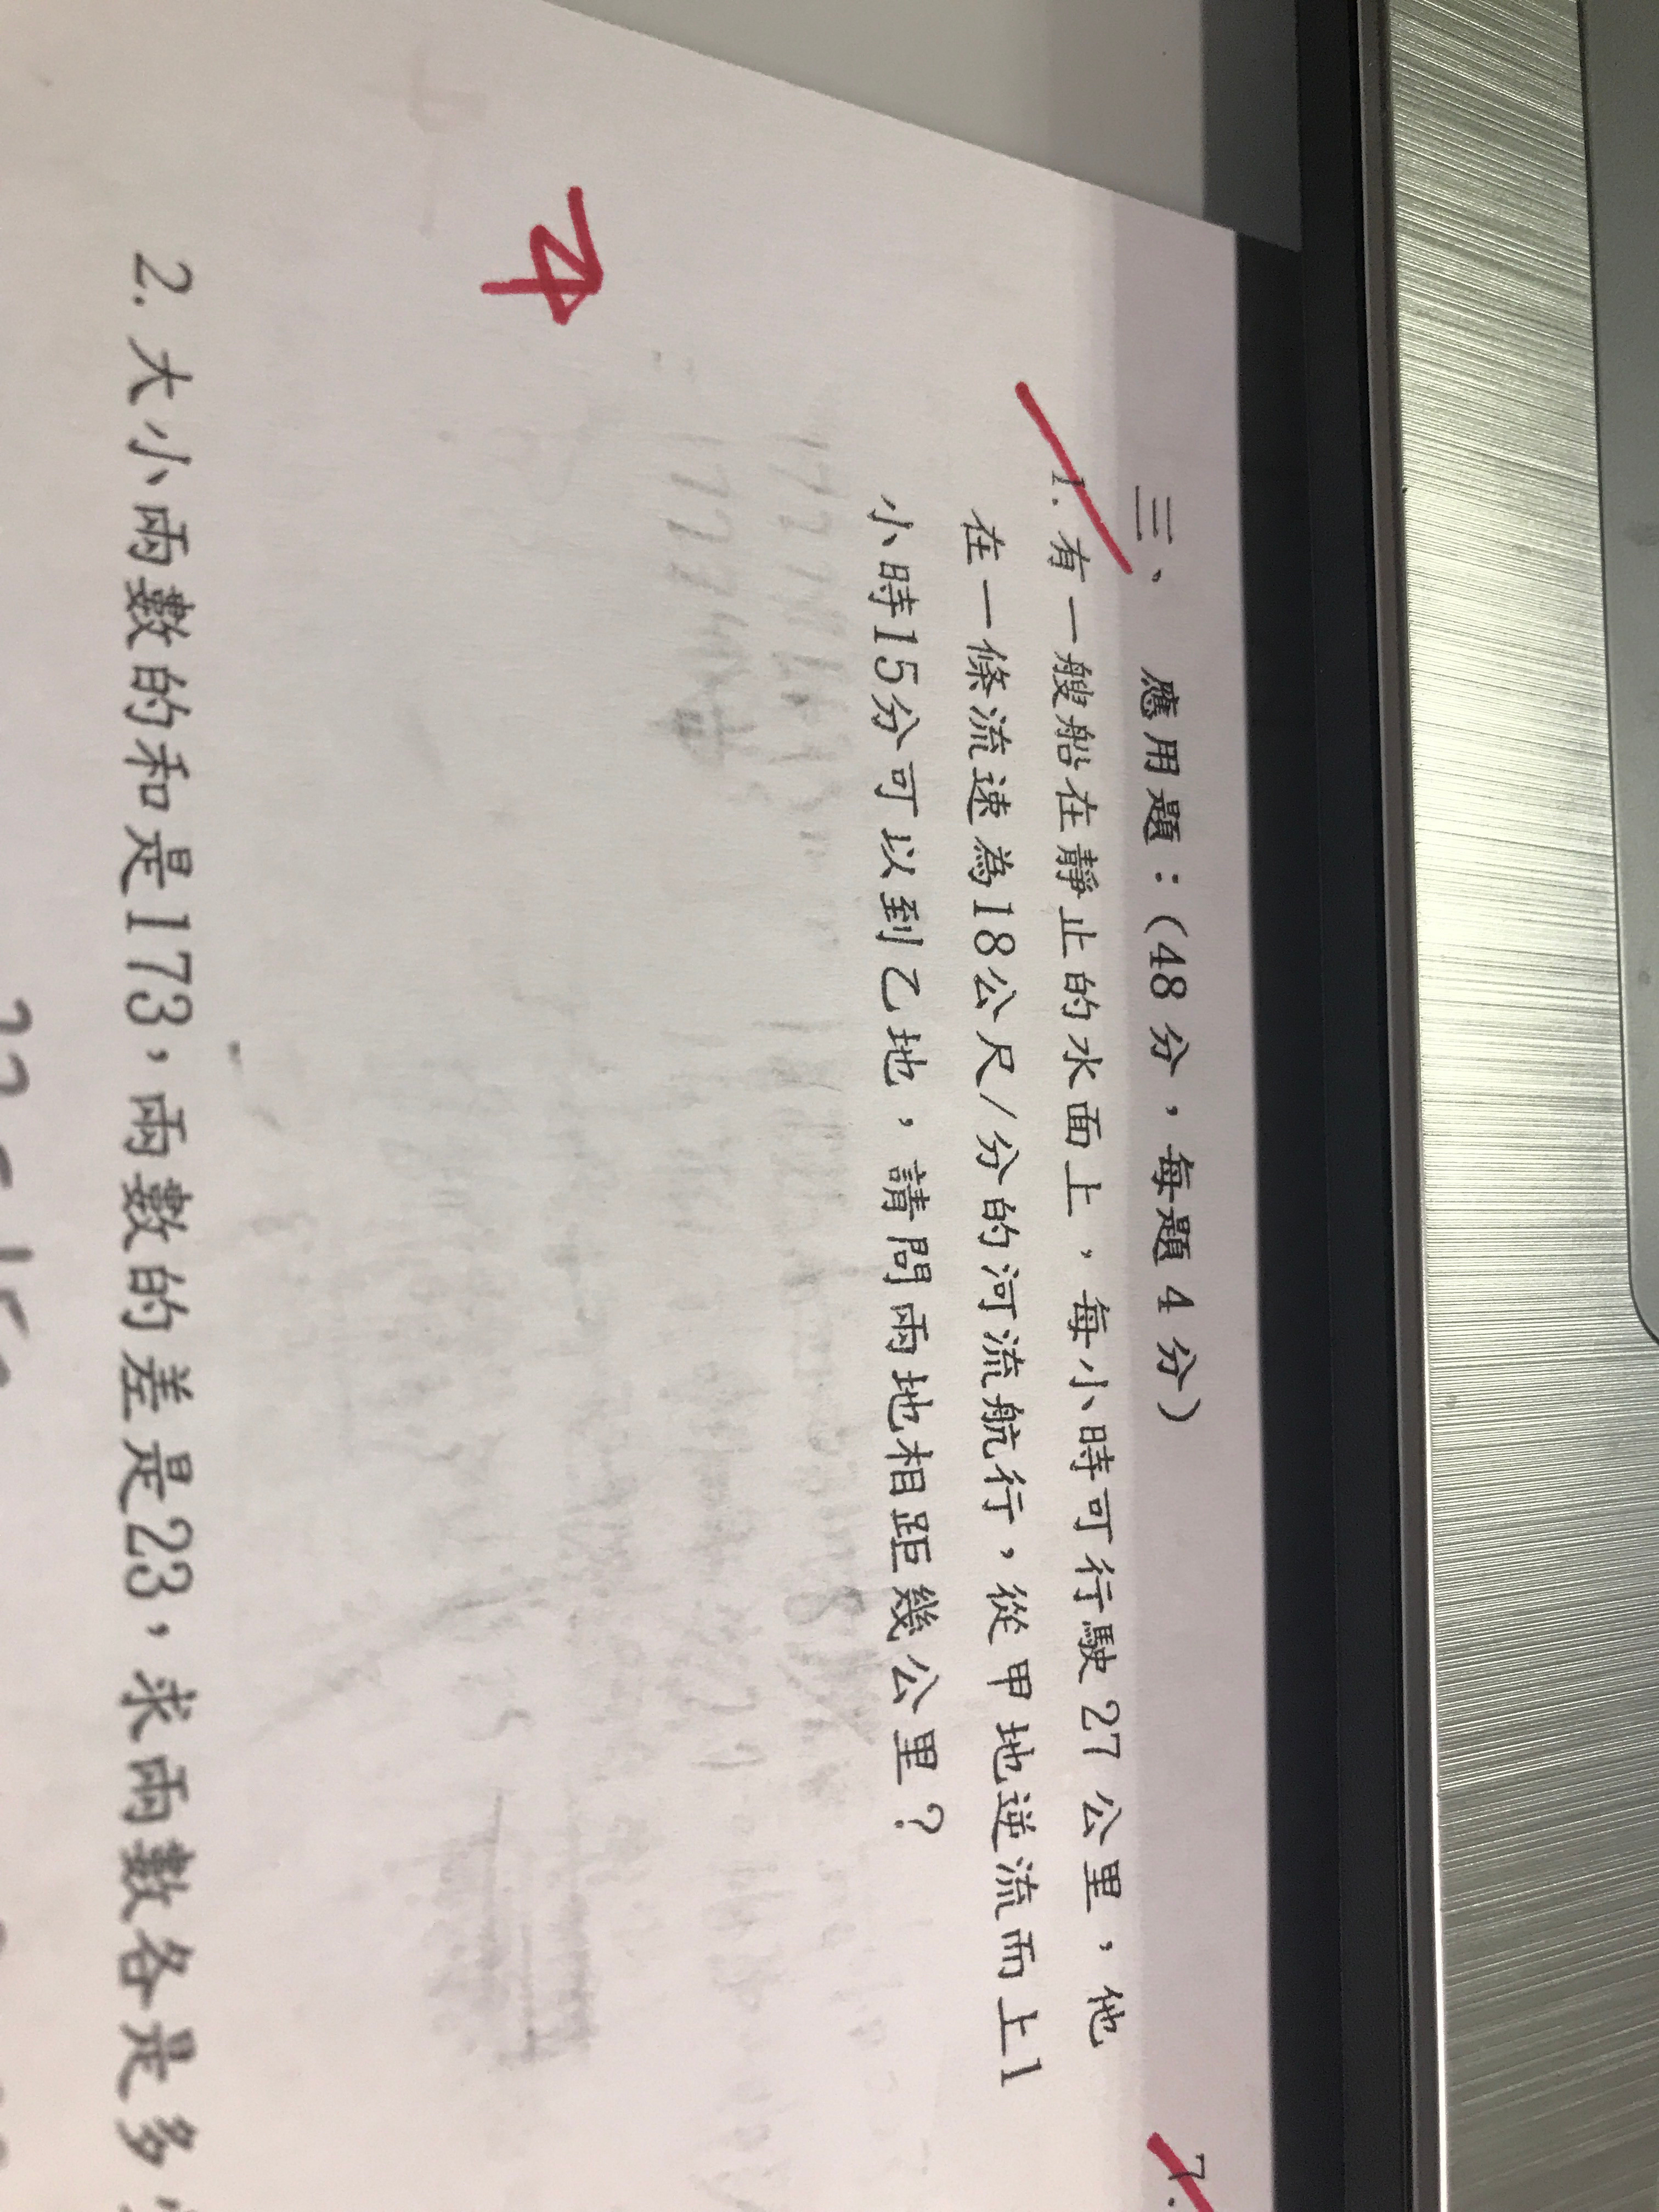 三、 應用題：(48分，每題4分)
1. 有一艘船在靜止的水面上，每小時可行駛27公里，他
在一條流速為18公尺/分的河流航行，從甲地逆流而上1
小時15分可以到乙地，請問兩地相距幾公里？
4
2. 大小兩數的和是173，兩數的差是23，求兩數各是多
7.